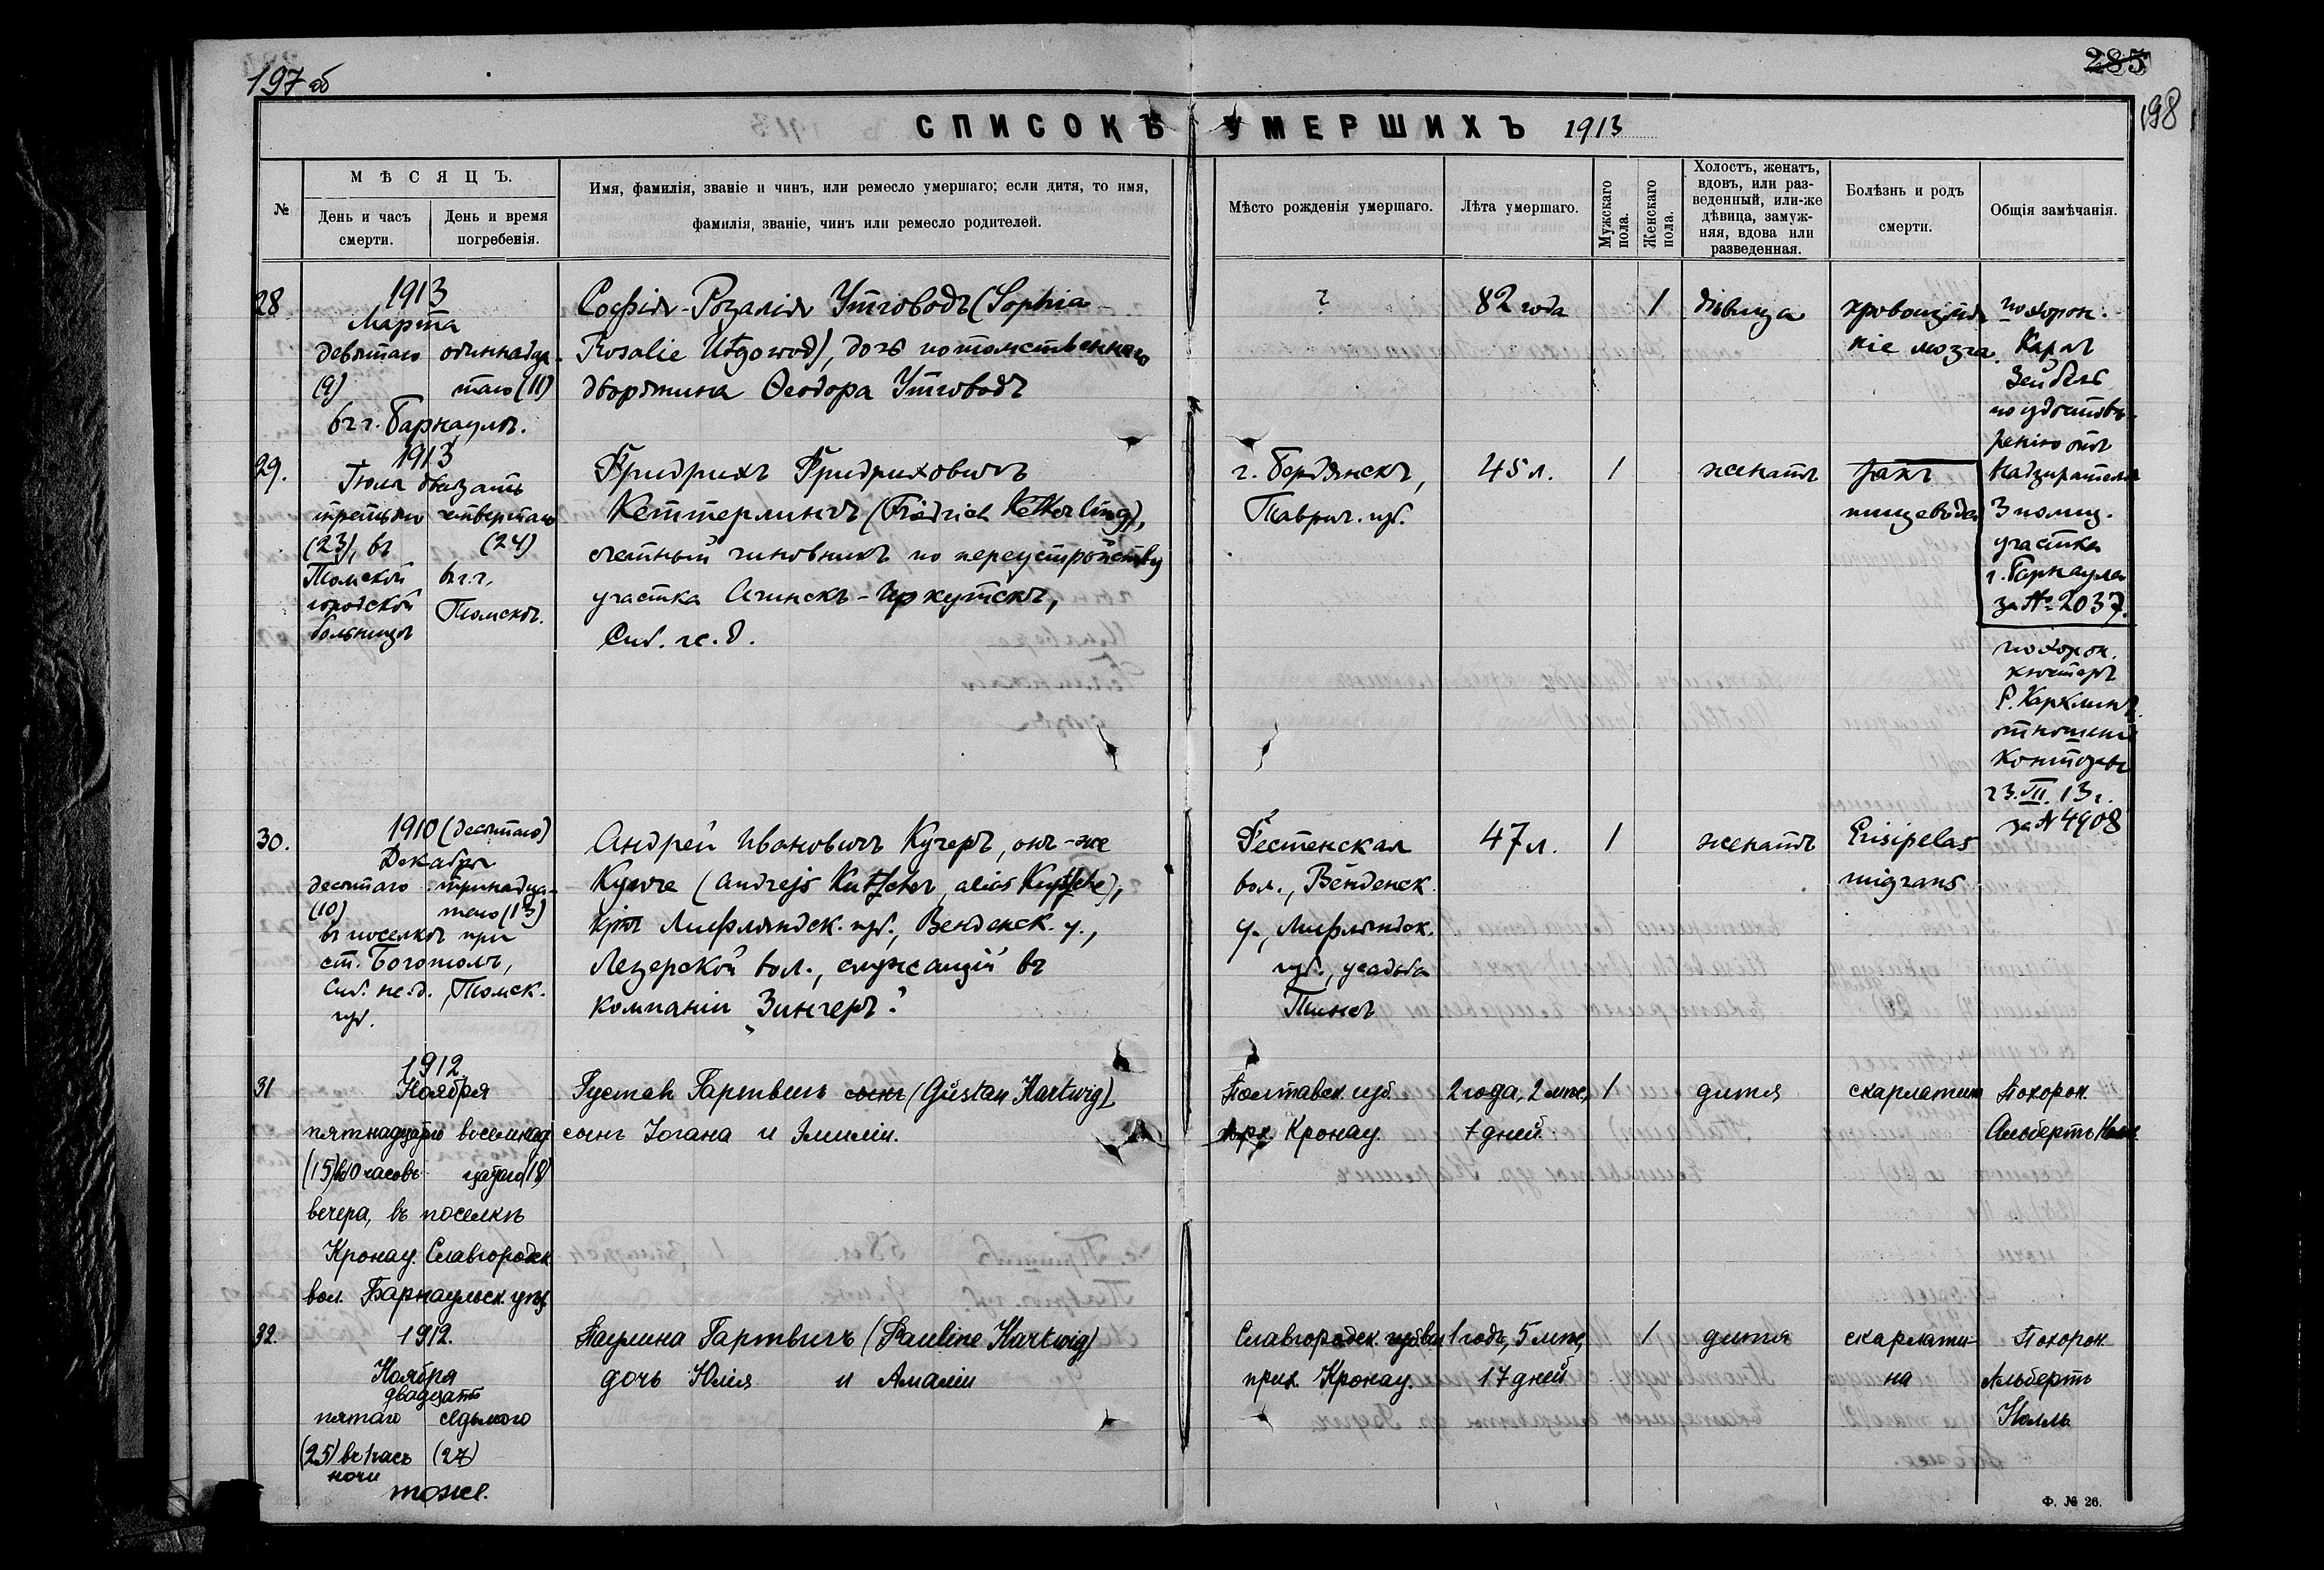 197 об
285
198
СПИСОКЪ УМЕРШИХЪ 1913
№
МѢСЯЦЪ.
День и часъ
смерти.
День и время
погребенія.
Имя, фамилія, званіе и чинъ, или ремесло умершаго; если дитя, то имя,
фамилія, званіе, чинъ или ремесло родителей.
Мѣсто рожденія умершаго.
Лѣта умершаго.
Мужскаго
пола.
Женскаго
пола.
Холостъ, женатъ,
вдовъ, или раз-
веденный, или-же
дѣвица, замуж-
няя, вдова или
разведенная.
Болѣзнь и родъ
смерти.
Общія замѣчанія.
28
1913
Марта
девятаго
(9)
одиннадца-
таго (11)
въ г. Барнаулѣ.
Софія-Розалія Утговдъ (Sophia-
Rosalie Utgowod), дочь потомственнаго
дворянина Ѳеодора Утговодъ
?
82 года
1
дѣвица
кровоизлія
ніе мозга.
похорон.
Карлъ
Зейбель
по удостовѣ-
ренію отъ
надзирателя
3 полиц.
участка
г. Барнаула
за № 2037.
29.
1913
Іюля двадцать
третьяго
(23), въ
Томской
городской
больницѣ
четвертаго
(24)
въ г.
Томскѣ.
Фридрихъ Фридриховичъ
Кеттерлингъ (Friedrich Ketterling),
счетный чиновникъ по переустройству
участка Ачинскъ-Иркутскъ,
Сиб. ж. д.
г. Бердянскъ,
Таврич. губ.
45 л.
1
женатъ
ракъ
пищевода
похорон.
кюстеръ
Р. Карклинъ
отношеніе
конторы
23.VII.13 г.
за № 4908
30.
1910 (десятаго)
Декабря
десятаго
(10)
тринадца-
таго (13)
въ поселкѣ при
ст. Боготолъ,
Сиб. ж. д., Томск.
губ.
Андрей Ивановичъ Кучеръ, онъ-же
Куче (Andrejs Kutscher, alias Kutsche),
кр. Лифляндск. губ., Венденск. у.,
Лезерской вол., служащій въ
компаніи „Зингеръ".
Фестенская
вол., Венденск.
у., Лифляндск.
губ., усадьба
47 л.
1
женатъ
Erisipelas
migrans
31
1912.
Ноября
пятнадцатаго
(15) в 10 часовъ
восемнад
цатаго (18)
вечера, въ поселкѣ
Кронау. Славгородск.
вол. Барнаульск. уѣз.
Густавъ Гартвигъ сынъ (Gustav Hartwig)
сынъ Іогана и Эмиліи.
Полтавск. губ.
прх. Кронау.
2 года, 2 мѣс,
7 дней.
1
дитя
скарлатина
Похорон.
Альбертъ Нолль
32.
1912.
Ноября
двадцать
пятаго
седьмого
(25) въ 1 часъ
ночи
(27)
тоже.
Паулина Гартвигъ (Pauline Hartwig)
дочь Юлія и Амаліи
Славгородск. вол
прих. Кронау.
1 годъ, 5 мѣс,
17 дней
1
дитя
скарлати-
на
Похорон.
Альбертъ
Нолль
Ф. № 26.